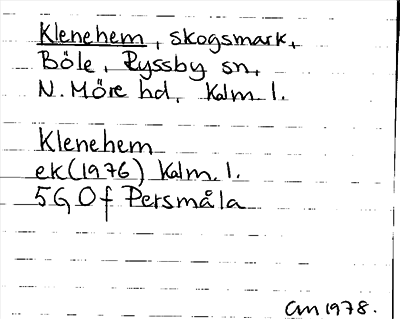 Klenehem, skogsmark,
Böle, Ryssby sn,
N. Möre hd, Kalm l.
Klenehem
ek (1976) Kalm. l.
5G 0f Persmåla
CM 1978.